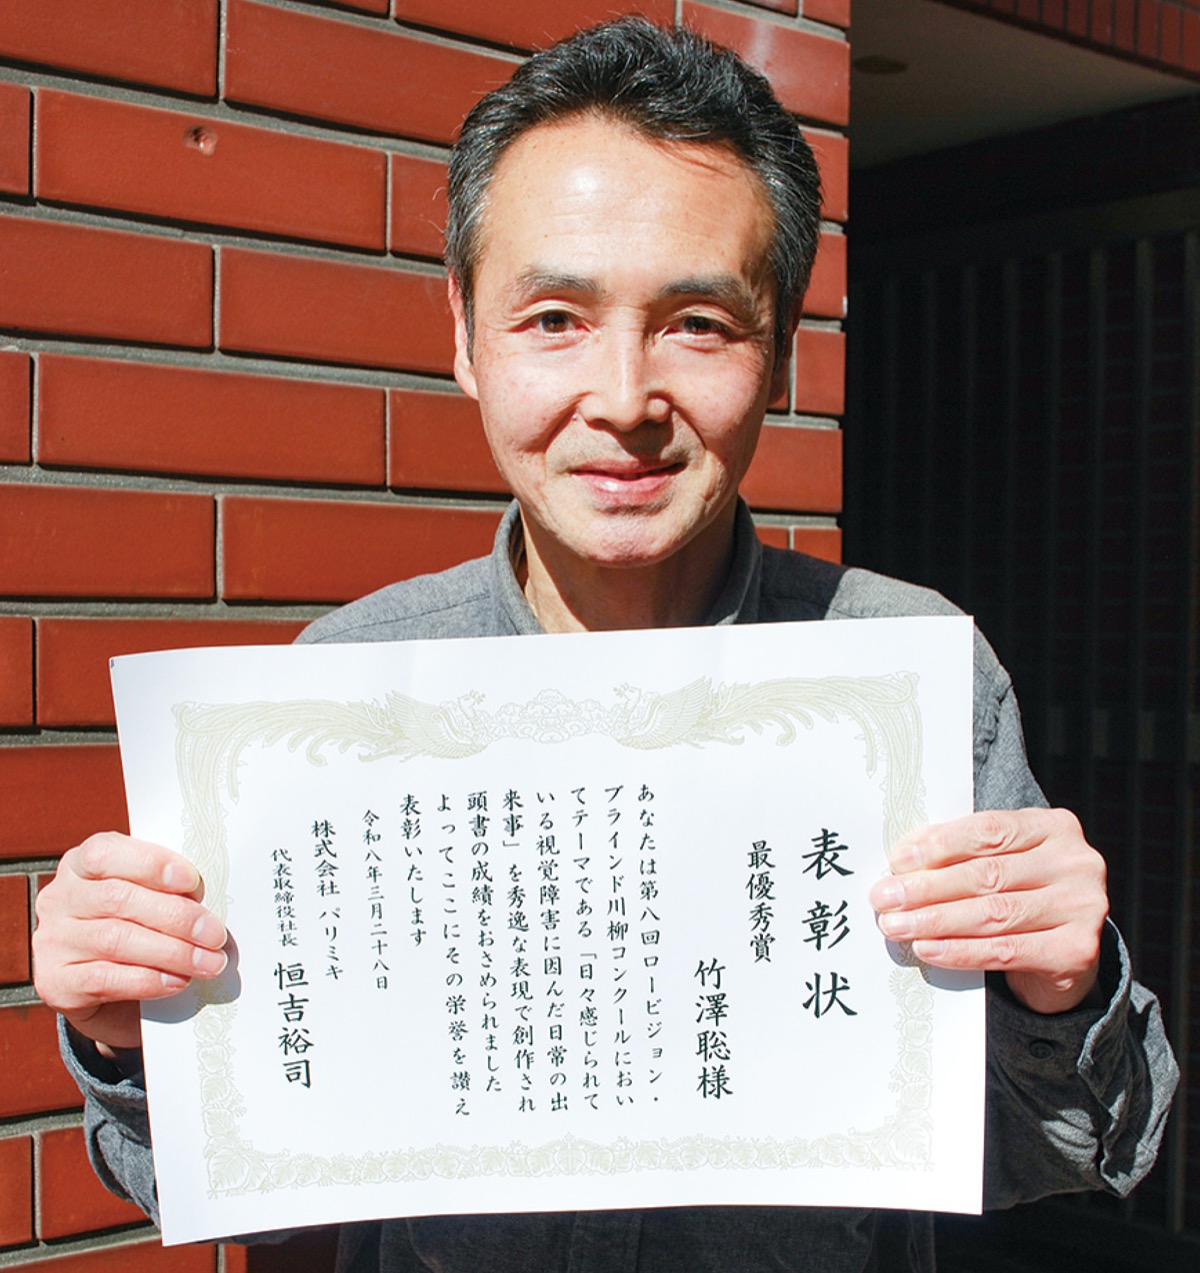 表彰状
最優秀賞
竹澤聡様
あなたは第八回ロービジョン・
ブラインド川柳コンクールにおい
てテーマである「日々感じられて
いる視覚障害に因んだ日常の出
来事」を秀逸な表現で創作され
頭書の成績をおさめられました
よってここにその栄誉を讃え
表彰いたします
令和八年三月二十八日
株式会社 パリミキ
代表取締役社長 恒吉裕司